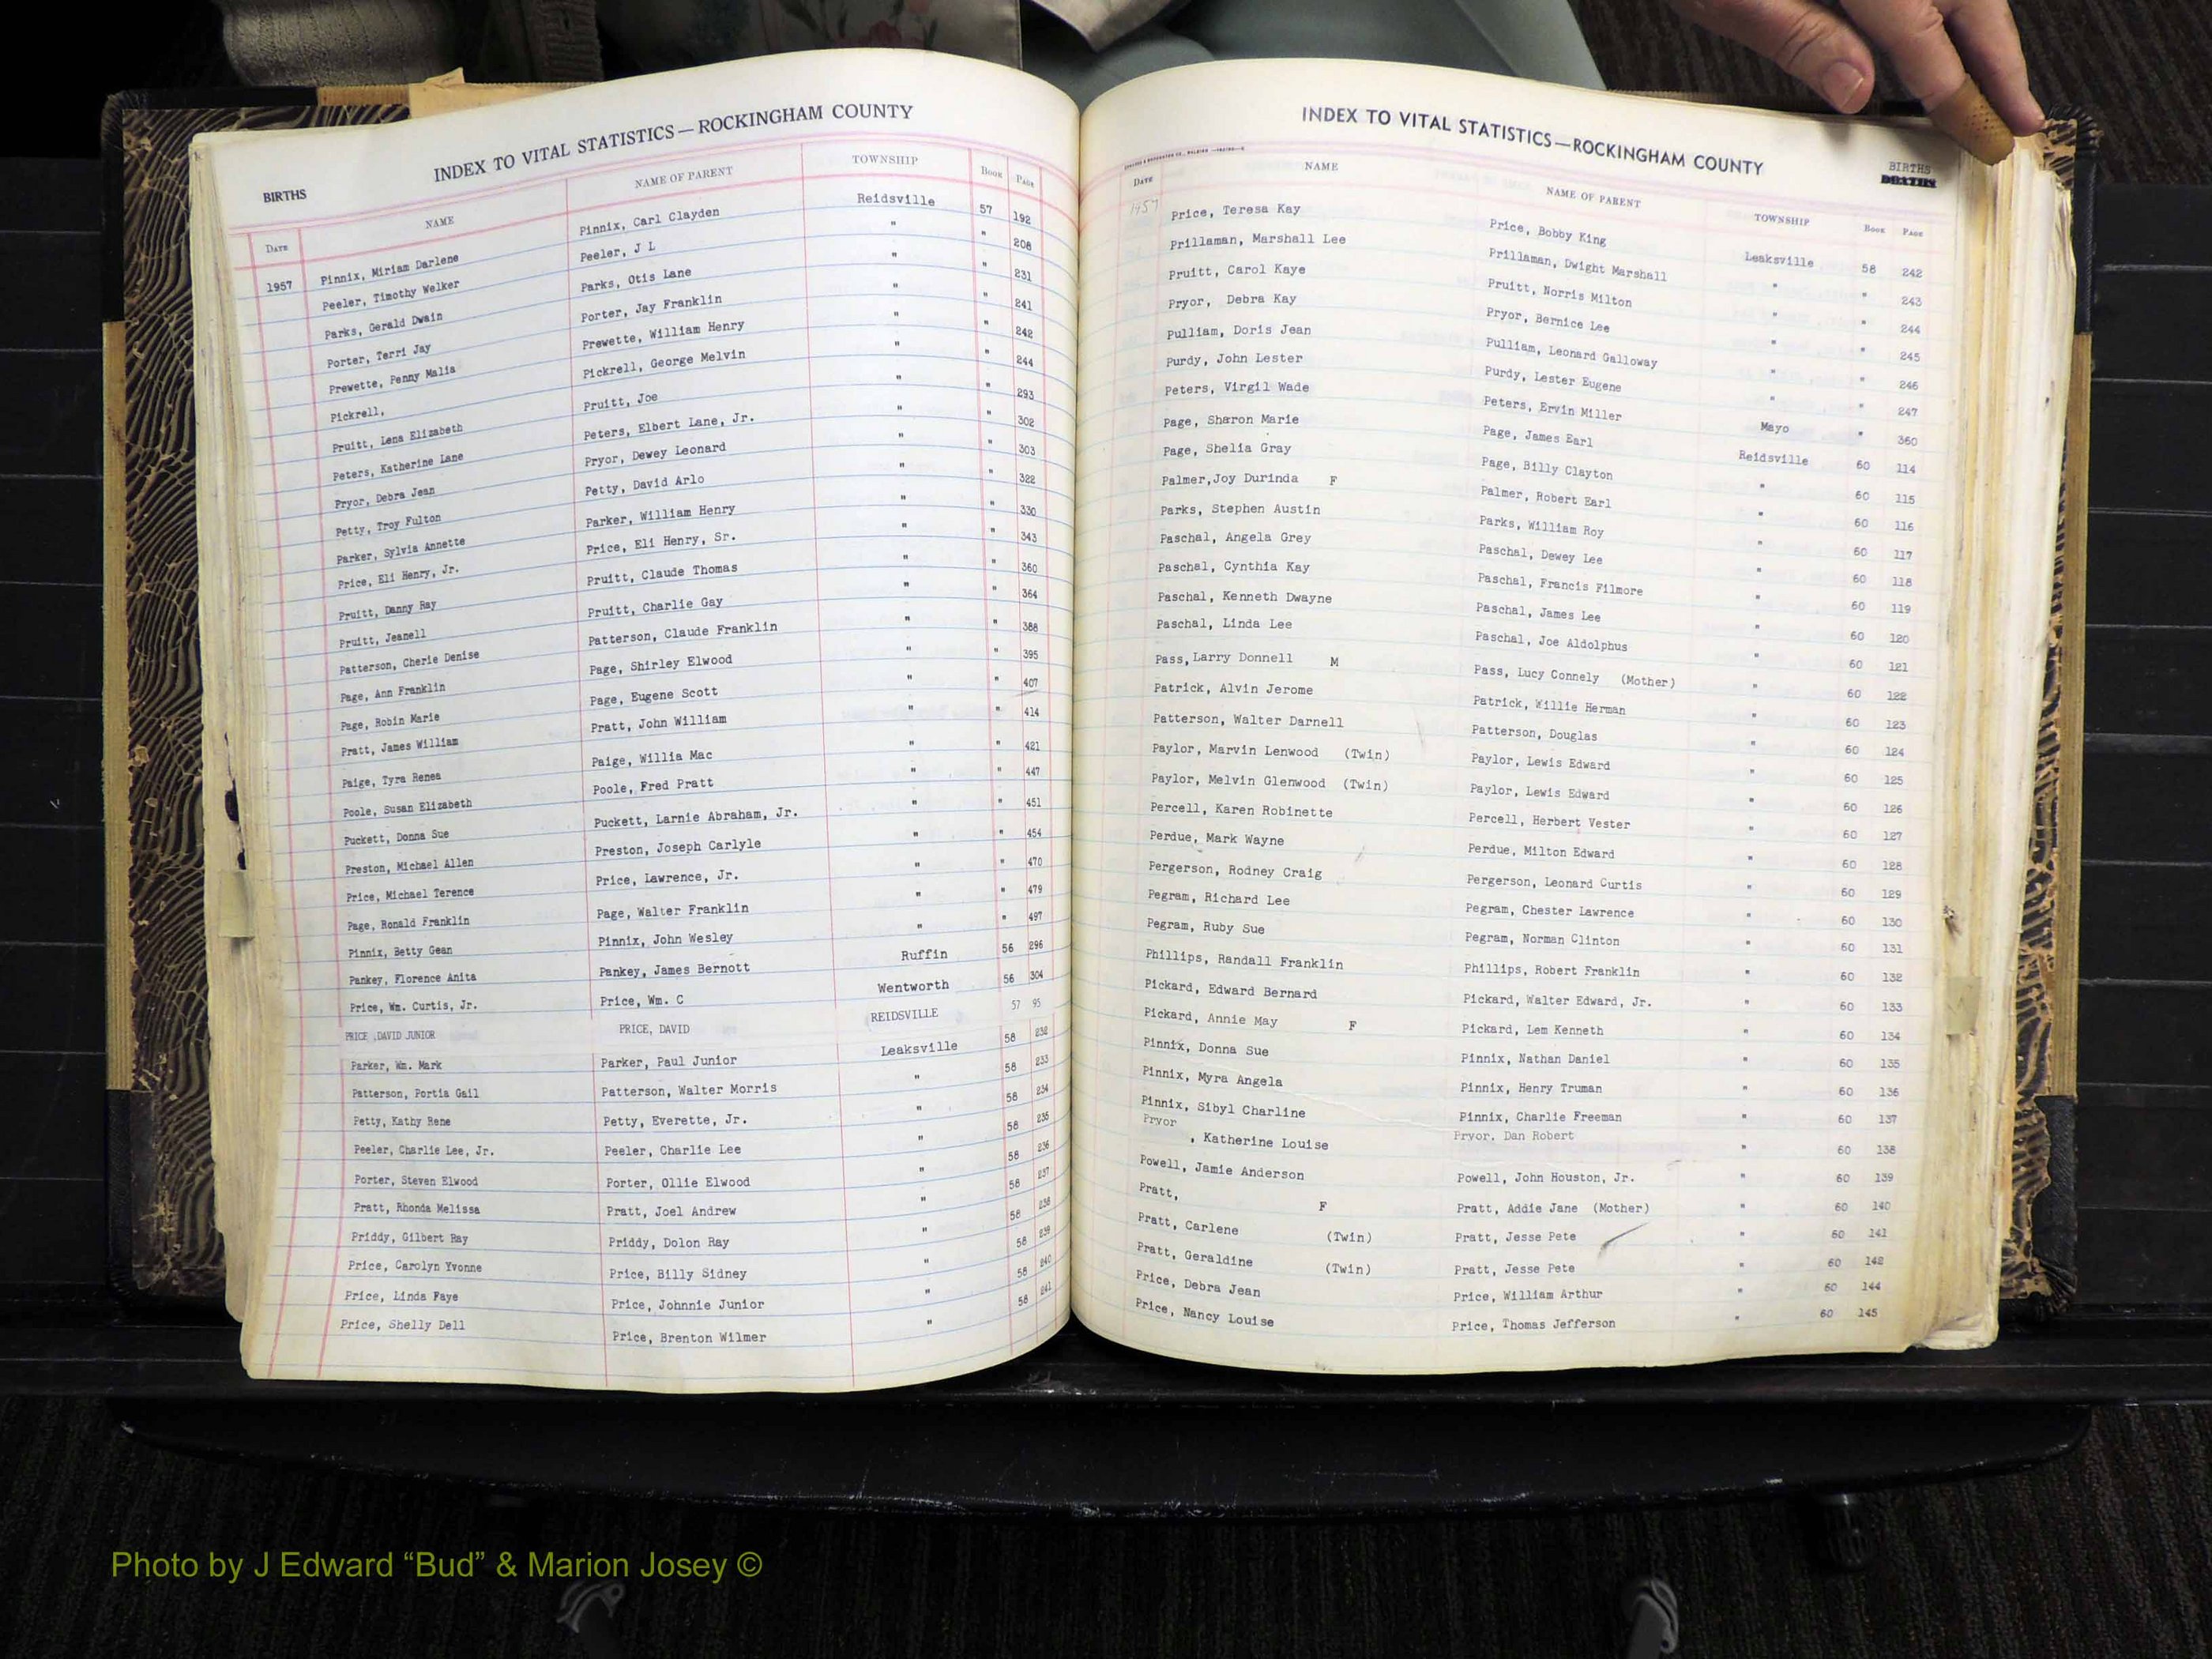 INDEX TO VITAL STATISTICS—ROCKINGHAM COUNTY
BIRTHS
DATE NAME NAME OF PARENT TOWNSHIP BOOK PAGE
1957 Pinnix, Miriam Darlene Pinnix, Carl Clayden Reidsville 57 192
Peeler, Timothy Welker Peeler, J L " " 208
Parks, Gerald Dwain Parks, Otis Lane " " 231
Porter, Terri Jay Porter, Jay Franklin " " 241
Prewette, Penny Malia Prewette, William Henry " " 242
Pickrell, Pickrell, George Melvin " " 244
Pruitt, Lena Elizabeth Pruitt, Joe " " 293
Peters, Katherine Lane Peters, Elbert Lane, Jr. " " 302
Pryor, Debra Jean Pryor, Dewey Leonard " " 303
Petty, Troy Fulton Petty, David Arlo " " 322
Parker, Sylvia Annette Parker, William Henry " " 330
Price, Eli Henry, Jr. Price, Eli Henry, Sr. " " 343
Pruitt, Danny Ray Pruitt, Claude Thomas " " 360
Pruitt, Jeanell Pruitt, Charlie Gay " " 364
Patterson, Cherie Denise Patterson, Claude Franklin " " 388
Page, Ann Franklin Page, Shirley Elwood " " 395
Page, Robin Marie Page, Eugene Scott " " 407
Pratt, James William Pratt, John William " " 414
Paige, Tyra Renea Paige, Willia Mac " " 421
Poole, Susan Elizabeth Poole, Fred Pratt " " 447
Puckett, Donna Sue Puckett, Larnie Abraham, Jr. " " 451
Preston, Michael Allen Preston, Joseph Carlyle " " 454
Price, Michael Terence Price, Lawrence, Jr. " " 470
Page, Ronald Franklin Page, Walter Franklin " " 479
Pinnix, Betty Gean Pinnix, John Wesley " " 497
Pankey, Florence Anita Pankey, James Bernott Ruffin 56 296
Price, Wm. Curtis, Jr. Price, Wm. C Wentworth 56 304
PRICE ,DAVID JUNIOR PRICE, DAVID REIDSVILLE 57 95
Parker, Wm. Mark Parker, Paul Junior Leaksville 58 232
Patterson, Portia Gail Patterson, Walter Morris " 58 233
Petty, Kathy Rene Petty, Everette, Jr. " 58 234
Peeler, Charlie Lee, Jr. Peeler, Charlie Lee " 58 235
Porter, Steven Elwood Porter, Ollie Elwood " 58 236
Pratt, Rhonda Melissa Pratt, Joel Andrew " 58 237
Priddy, Gilbert Ray Priddy, Dolon Ray " 58 238
Price, Carolyn Yvonne Price, Billy Sidney " 58 239
Price, Linda Faye Price, Johnnie Junior " 58 240
Price, Shelly Dell Price, Brenton Wilmer " 58 241
INDEX TO VITAL STATISTICS—ROCKINGHAM COUNTY
BIRTHS
DEATHS
DATE NAME NAME OF PARENT TOWNSHIP BOOK PAGE
1957 Price, Teresa Kay Price, Bobby King Leaksville 58 242
Prillaman, Marshall Lee Prillaman, Dwight Marshall " " 243
Pruitt, Carol Kaye Pruitt, Norris Milton " " 244
Pryor, Debra Kay Pryor, Bernice Lee " " 245
Pulliam, Doris Jean Pulliam, Leonard Galloway " " 246
Purdy, John Lester Purdy, Lester Eugene " " 247
Peters, Virgil Wade Peters, Ervin Miller Mayo " 360
Page, Sharon Marie Page, James Earl Reidsville 60 114
Page, Shelia Gray Page, Billy Clayton " 60 115
Palmer,Joy Durinda F Palmer, Robert Earl " 60 116
Parks, Stephen Austin Parks, William Roy " 60 117
Paschal, Angela Grey Paschal, Dewey Lee " 60 118
Paschal, Cynthia Kay Paschal, Francis Filmore " 60 119
Paschal, Kenneth Dwayne Paschal, James Lee " 60 120
Paschal, Linda Lee Paschal, Joe Aldolphus " 60 121
Pass,Larry Donnell M Pass, Lucy Connely (Mother) " 60 122
Patrick, Alvin Jerome Patrick, Willie Herman " 60 123
Patterson, Walter Darnell Patterson, Douglas " 60 124
Paylor, Marvin Lenwood (Twin) Paylor, Lewis Edward " 60 125
Paylor, Melvin Glenwood (Twin) Paylor, Lewis Edward " 60 126
Percell, Karen Robinette Percell, Herbert Vester " 60 127
Perdue, Mark Wayne Perdue, Milton Edward " 60 128
Pergerson, Rodney Craig Pergerson, Leonard Curtis " 60 129
Pegram, Richard Lee Pegram, Chester Lawrence " 60 130
Pegram, Ruby Sue Pegram, Norman Clinton " 60 131
Phillips, Randall Franklin Phillips, Robert Franklin " 60 132
Pickard, Edward Bernard Pickard, Walter Edward, Jr. " 60 133
Pickard, Annie May F Pickard, Lem Kenneth " 60 134
Pinnix, Donna Sue Pinnix, Nathan Daniel " 60 135
Pinnix, Myra Angela Pinnix, Henry Truman " 60 136
Pinnix, Sibyl Charline Pinnix, Charlie Freeman " 60 137
Pryor , Katherine Louise Pryor, Dan Robert " 60 138
Powell, Jamie Anderson Powell, John Houston, Jr. " 60 139
Pratt, F Pratt, Addie Jane (Mother) " 60 140
Pratt, Carlene (Twin) Pratt, Jesse Pete " 60 141
Pratt, Geraldine (Twin) Pratt, Jesse Pete " 60 142
Price, Debra Jean Price, William Arthur " 60 144
Price, Nancy Louise Price, Thomas Jefferson " 60 145
Photo by J Edward “Bud” & Marion Josey ©